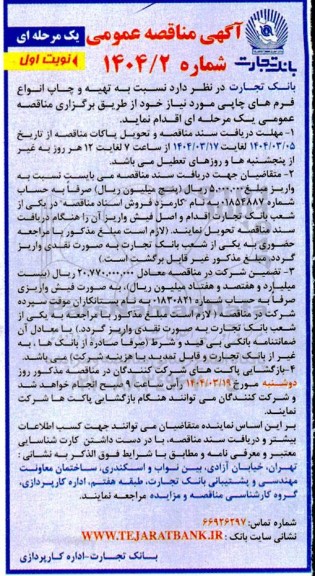 آگهی مناقصه عمومی یک مرحله ای
شماره ۱۴۰۴/۲
نوبت اول
بانک تجارت
بانک تجارت در نظر دارد نسبت به تهیه و چاپ انواع
فرم های چاپی مورد نیاز خود از طریق برگزاری مناقصه
عمومی یک مرحله ای اقدام نماید.
۱- مهلت دریافت سند مناقصه و تحویل پاکات مناقصه از تاریخ
۱۴۰۴/۰۳/۰۵ لغایت ۱۴۰۴/۰۳/۱۷ از ساعت ۷ لغایت ۱۲ هر روز به غیر
از پنجشنبه ها و روزهای تعطیل می باشد.
۲- متقاضیان جهت دریافت سند مناقصه می بایست نسبت به
واریز مبلغ ۵.۰۰۰.۰۰۰ ریال (پنج میلیون ریال) صرفاً به حساب
شماره ۰۱۸۵۴۸۸۷ به نام "کارمزد فروش اسناد مناقصه" در یکی از
شعب بانک تجارت اقدام و اصل فیش واریز آن را هنگام دریافت
سند مناقصه تحویل نمایند. (لازم است مبلغ مذکور با مراجعه
حضوری به یکی از شعب بانک تجارت به صورت نقدی واریز
گردد. مبلغ مذکور غیر قابل برگشت است.)
۳- تضمین شرکت در مناقصه معادل ۲۰.۷۷۰.۰۰۰.۰۰۰ ریال (بیست
میلیارد و هفتصد و هفتاد میلیون ریال)، به صورت فیش واریزی
صرفاً به حساب شماره ۰۱۸۳۰۸۲۱ به نام بستانکاران موقت سپرده
شرکت در مناقصه ( لازم است مبلغ مذکور با مراجعه به یکی از
شعب بانک تجارت به صورت نقدی واریز گردد.) یا معادل آن
ضمانتنامه بانکی بی قید و شرط (صرفاً صادره از بانک ها ، به
غیر از بانک تجارت و قابل تمدید با هزینه شرکت) می باشد.
۴-بازگشایی پاکت های شرکت کنندگان در مناقصه مذکور روز
دوشنبه مورخ ۱۴۰۴/۰۳/۱۹ رأس ساعت ۹ صبح انجام خواهد شد
و شرکت کنندگان می توانند هنگام بازگشایی پاکت ها شرکت
نمایند.
بر این اساس نماینده متقاضیان می توانند جهت کسب اطلاعات
بیشتر و دریافت سند مناقصه، با در دست داشتن کارت شناسایی
معتبر و معرفی نامه و مطابق با شرایط فوق الذکر به نشانی :
تهران، خیابان آزادی، بین نواب و اسکندری، ساختمان معاونت
مهندسی و پشتیبانی بانک تجارت، طبقه هفتم، اداره کارپردازی،
گروه کارشناسی مناقصه و مزایده مراجعه نمایند.
شماره تماس: ۶۶۹۲۶۲۹۷
نشانی سایت بانک : WWW.TEJARATBANK.IR
بانک تجارت-اداره کارپردازی